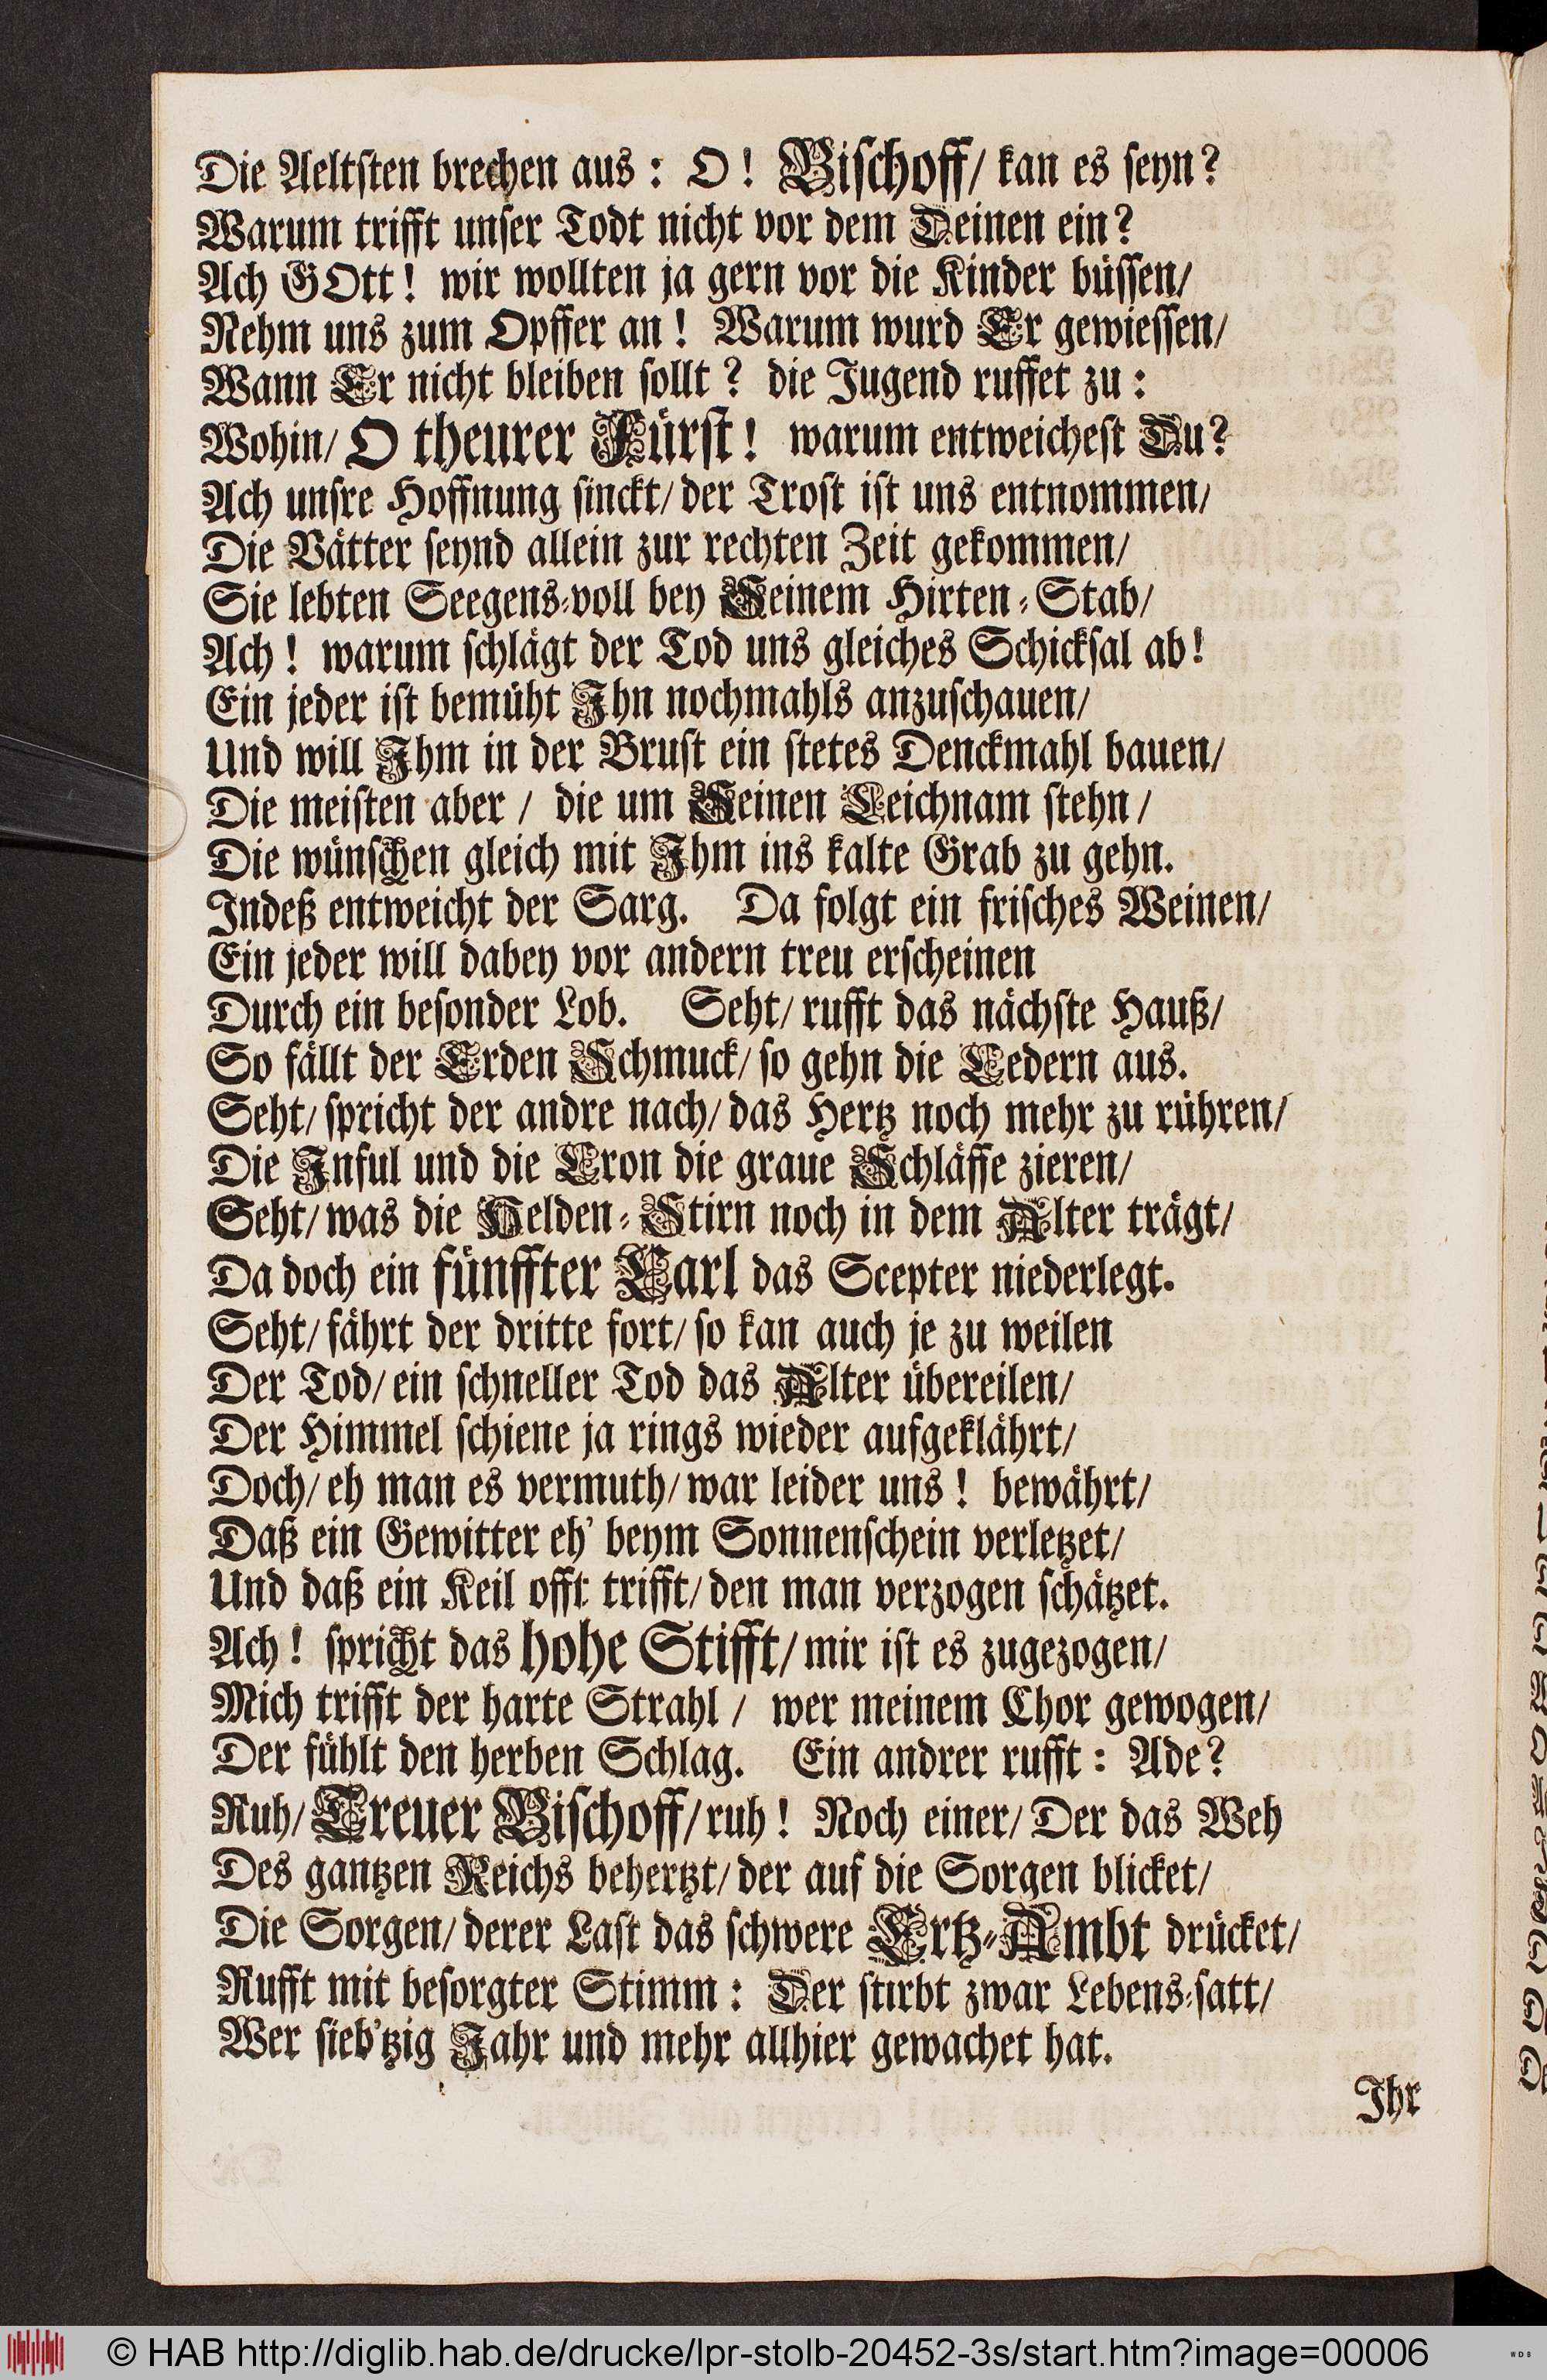 Die Aeltsten brechen aus : O ! Bischoff/ kan es seyn?
Warum trifft unser Todt nicht vor dem Deinen ein?
Ach GOtt! wir wollten ja gern vor die Kinder büssen/
Nehm uns zum Opffer an ! Warum wurd Er gewiessen/
Wann Er nicht bleiben sollt ? die Jugend ruffet zu :
Wohin/ O theurer Fürst ! warum entweichest Du?
Ach unsre Hoffnung sinckt/ der Trost ist uns entnommen/
Die Vätter seynd allein zur rechten Zeit gekommen/
Sie lebten Seegens-voll bey Seinem Hirten-Stab/
Ach ! warum schlägt der Tod uns gleiches Schicksal ab!
Ein jeder ist bemüht Ihn nochmahls anzuschauen/
Und will Ihm in der Brust ein stetes Denckmahl bauen/
Die meisten aber / die um Seinen Leichnam stehn /
Die wünschen gleich mit Ihm ins kalte Grab zu gehn.
Indeß entweicht der Sarg. Da folgt ein frisches Weinen/
Ein jeder will dabey vor andern treu erscheinen
Durch ein besonder Lob. Seht/ rufft das nächste Hauß/
So fällt der Erden Schmuck/ so gehn die Cedern aus.
Seht/ spricht der andre nach/ das Hertz noch mehr zu rühren/
Die Inful und die Cron die graue Schläffe zieren/
Seht/ was die Helden-Stirn noch in dem Alter trägt/
Da doch ein fünffter Carl das Scepter niederlegt.
Seht/ fährt der dritte fort/ so kan auch je zu weilen
Der Tod/ ein schneller Tod das Alter übereilen/
Der Himmel schiene ja rings wieder aufgeklährt/
Doch/ eh man es vermuth/ war leider uns ! bewährt/
Daß ein Gewitter eh' beym Sonnenschein verletzet/
Und daß ein Keil offt trifft/ den man verzogen schätzet.
Ach ! spricht das hohe Stifft/ mir ist es zugezogen/
Mich trifft der harte Strahl / wer meinem Chor gewogen/
Der fühlt den herben Schlag. Ein andrer rufft : Ade?
Ruh/ Treuer Bischoff/ ruh ! Noch einer/ Der das Weh
Des gantzen Reichs behertzt/ der auf die Sorgen blicket/
Die Sorgen/ derer Last das schwere Ertz-Ambt drücket/
Rufft mit besorgter Stimm : Der stirbt zwar Lebens-satt/
Wer sieb'tzig Jahr und mehr allhier gewachet hat.
Ihr
© HAB http://diglib.hab.de/drucke/lpr-stolb-20452-3s/start.htm?image=00006
WDB